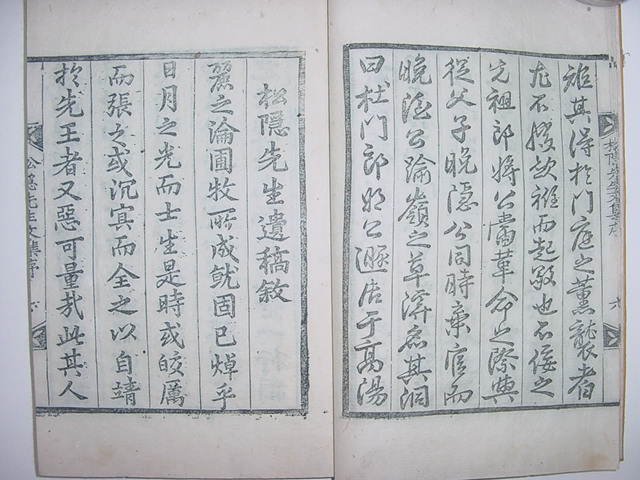 松隱先生文集序
雖其得於門庭之薰襲者
尤不而起敬也不佞之
先祖郎將公當革命之際與
從父子晚隱公同時棄官而
晚隱公踰嶺之草溪其洞
曰杜門郎將公遯居于高陽
松隱先生遺稿敘
麗之淪圃牧所成就固已焯乎
日月之光而士生是時或皎厲
而張之或沉冥而全之以自靖
於先王者又惡可量哉此其人
松隱先生文集序